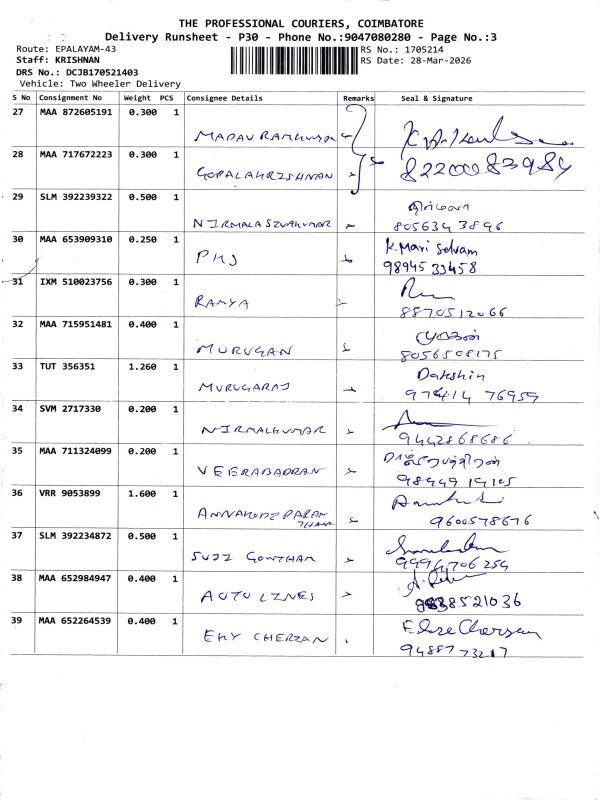 THE PROFESSIONAL COURIERS, COIMBATORE
Delivery Runsheet - P30 - Phone No.:9047080280 - Page No.:3
Route: EPALAYAM-43 RS No.: 1705214
Staff: KRISHNAN RS Date: 28-Mar-2026
DRS No.: DCJB170521403
Vehicle: Two Wheeler Delivery
S No Consignment No Weight PCS Consignee Details Remarks Seal & Signature
27 MAA 872605191 0.300 1
28 MAA 717672223 0.300 1 GOPALAKRISHNAN 8220083984
29 SLM 392239322 0.500 1
NIRMALA SIVAKUMAR 8056343896
30 MAA 653909310 0.250 1 K. Mari Selvam
PMJ 9894533458
31 IXM 510023756 0.300 1
RAMYA 8870512066
32 MAA 715951481 0.400 1 முருகன்
MURUGAN 8056508175
33 TUT 356351 1.260 1 Dakshin
MURUGARAJ 97414 76959
34 SVM 2717330 0.200 1
NIRMALKUMAR 9442868686
35 MAA 711324099 0.200 1
VEERABADRAN
36 VRR 9053899 1.600 1
9600578676
37 SLM 392234872 0.500 1
SUJI GOWTHAM 9994706254
38 MAA 652984947 0.400 1
AUTO LINES
39 MAA 652264539 0.400 1
EKY CHERIAN 9488773217